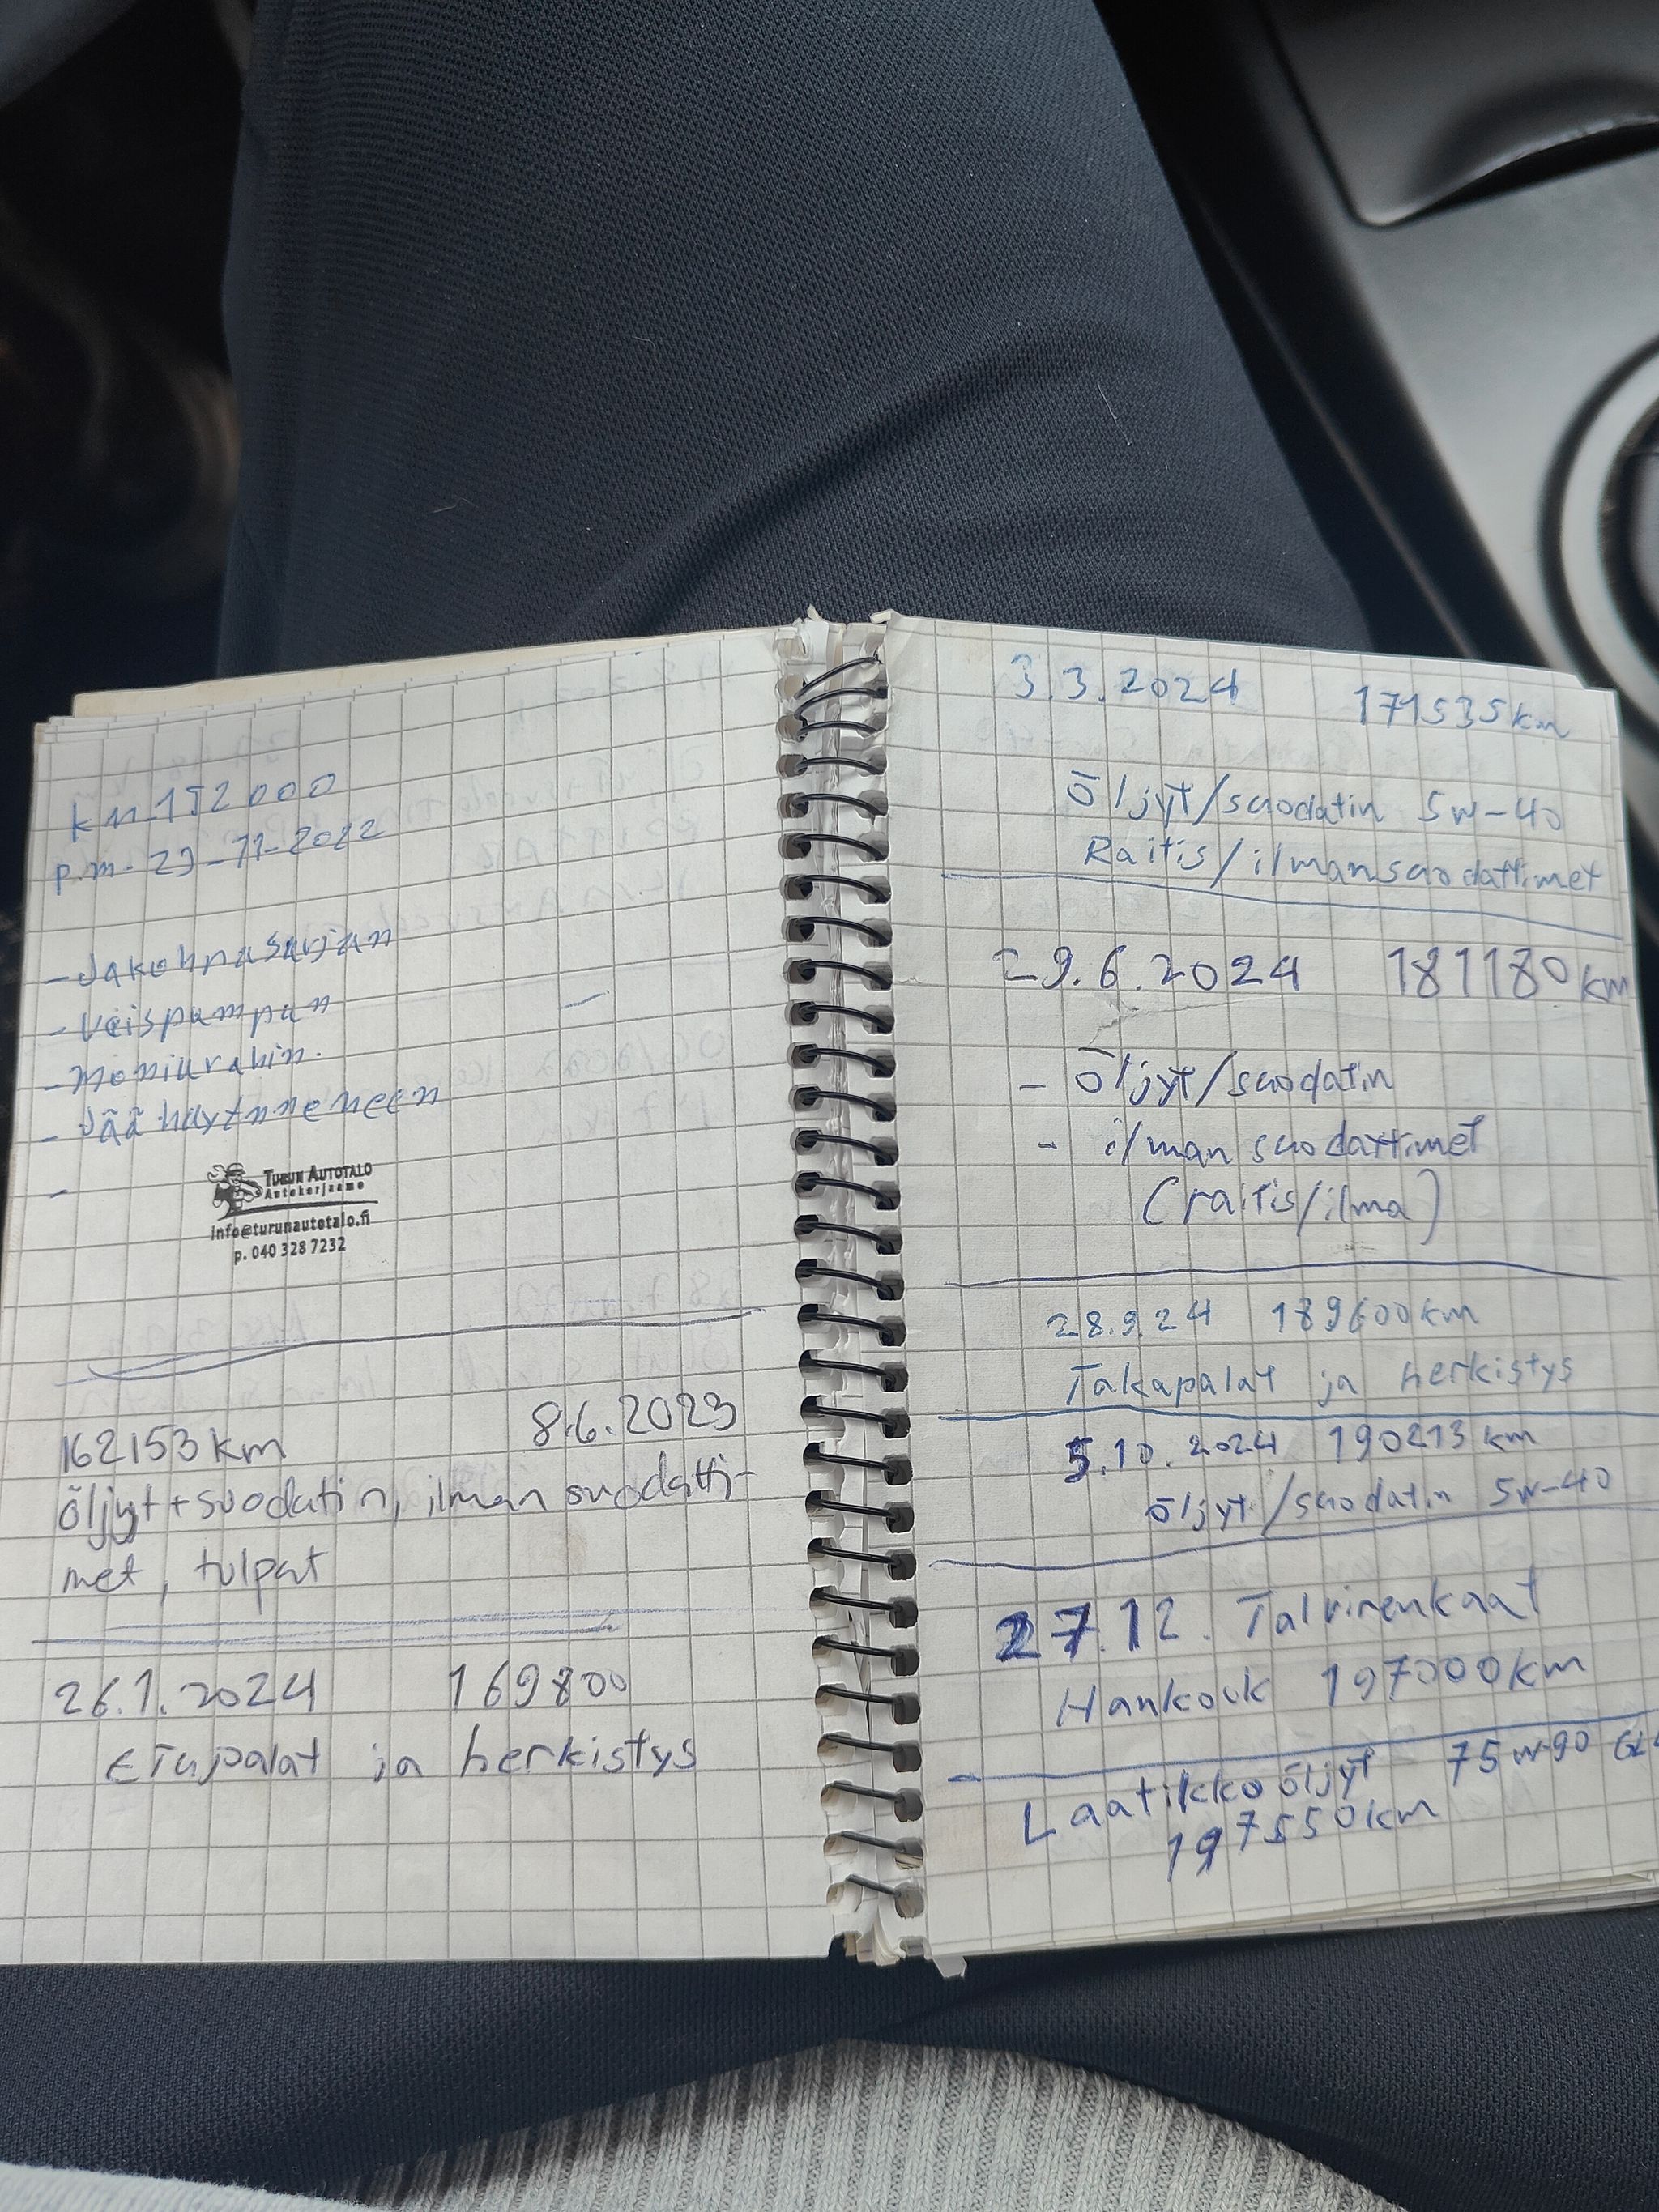 km 152000
p.m - 23-11-2022
- Jakohnasarjan
- Veispumpun
- Moniurahin.
- Jää häytnneneen
-
TURUN AUTOTALO
Autokorjaamo
info@turunautotalo.fi
p. 040 328 7232
8.6.2023
162153 km
öljyt + suodatin, ilman suodatti-
met, tulpat
26.1.2024 169800
Etupalat ja herkistys
3.3.2024 171535 km
Öljyt/suodatin 5w-40
Raitis/ilmansuodattimet
29.6.2024 181180 km
- Öljyt/suodatin
- ilman suodattimet
(raitis/ilma)
28.9.24 189600km
Takapalat ja herkistys
5.10.2024 190213 km
öljyt/suodatin 5w-40
27.12. Talvirenkaat
Hankook 197000km
Laatikko öljyt 75w-90
197550km